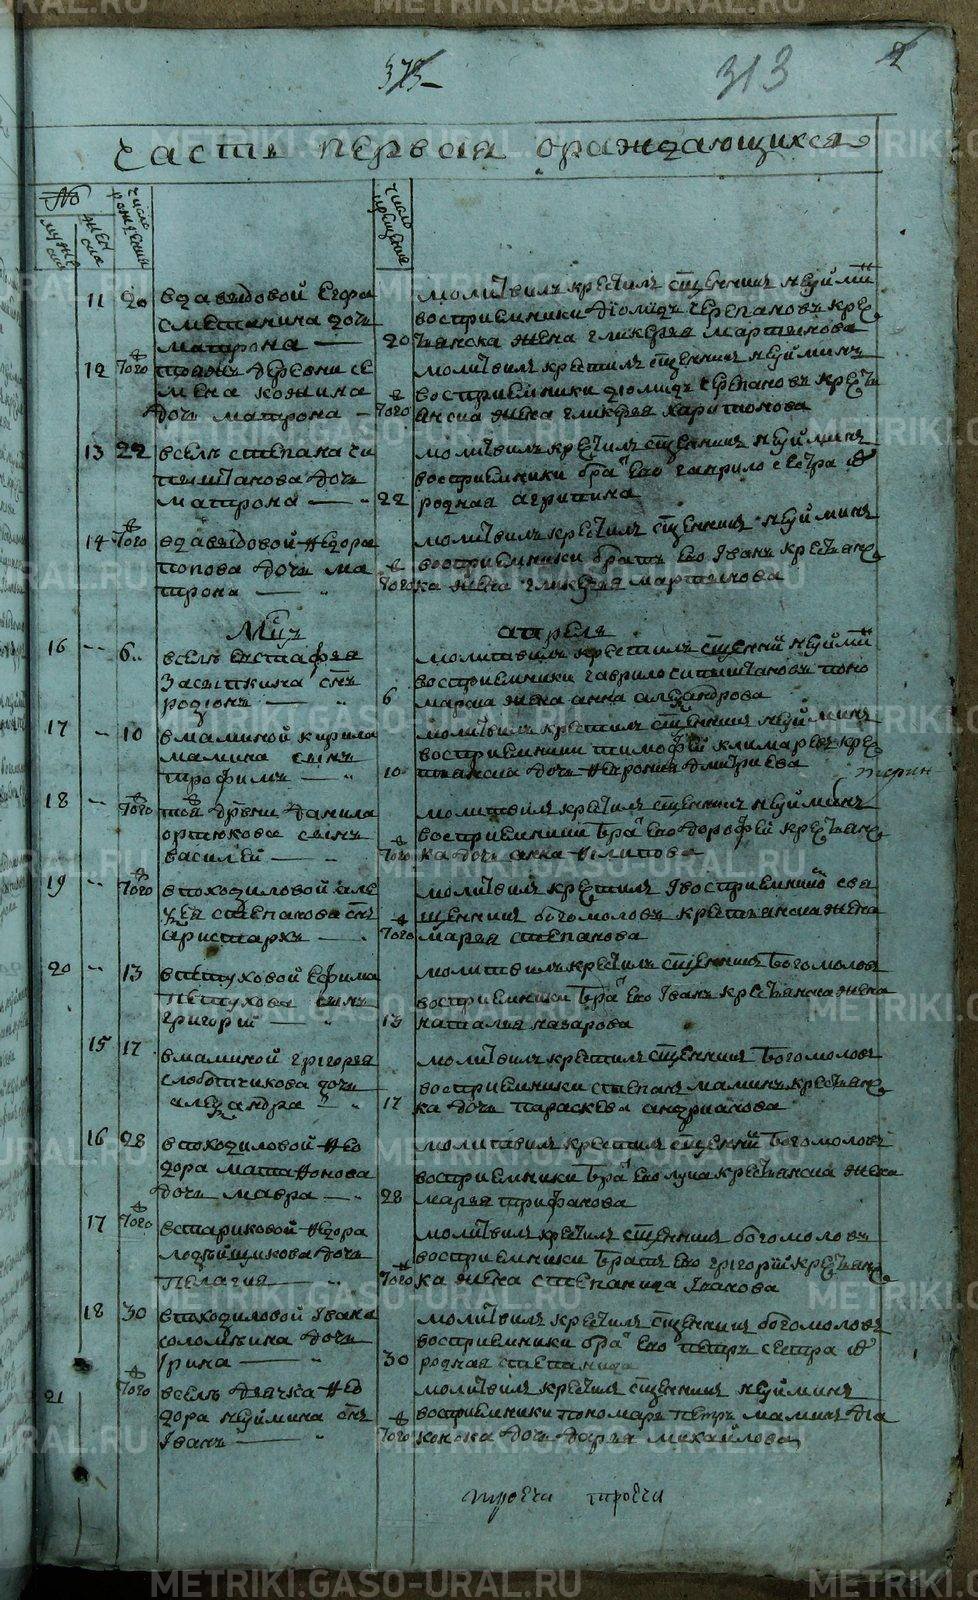 313
часть первая ораждающихся
№
муже
ска
жен
ска
число
рождения
число
крещения
11 20 в давыдовой Егора
Сметанина дочь
матрона 20
молитвилъ крестилъ сщенникъ неуйминъ
восприемники диомидъ черепановъ крес
тьянска жена гликерья мартынова
12 того тояжъ деревни се
мена кожина
дочь матрона того
молитвилъ крестилъ сщенникъ неуйминъ
восприемники диомидъ черепановъ кресть
янска жена гликерья харитонова
13 22 в селе степана си
пятанова дочь
матрона 22
молитвилъ крестилъ сщенникъ неуйминъ
восприемники братъ ево гаврило сестра
родная агрипина
14 того в давыдовой Федора
попова дочь ма
трона того
молитвилъ крестилъ сщенникъ неуйминъ
восприемники братъ ево Іванъ крестьянс
ка жена гликерья мартынова
Мсцъ апрель
16 6 в селе евстафья
Засыпкина снъ
родіонъ 6
молитвилъ крестилъ сщенникъ неуйминъ
восприемники гаврило сипятановъ поно
марска жена анна александрова
17 10 в маминой кирила
мамина сынъ
трофимъ 10
молитвилъ крестилъ сщенникъ неуйминъ
восприемники тимофей климаревъ крес
тьянска дочь февронья дмитриева
18 того той дрвни данила
ортюкова сынъ
василей того
молитвилъ крестилъ сщенникъ неуйминъ
восприемники братъ ево дорофей крестьянс
ка дочь анна филипова
19 того в походиловой але
ксея степанова снъ
аристархъ того
молитвилъ крестилъ Івосприемникъ свя
щенникъ богомоловъ крестьянска жена
марья степанова
20 13 в петуховой Ефима
петухова сынъ
григорій 13
молитвилъ крестилъ сщенникъ богомоловъ
восприемники братъ ево Іванъ крестьянска жена
наталья назарова
15 17 в маминой григорья
слободчикова дочь
александра 17
молитвилъ крестилъ сщенникъ богомоловъ
восприемники степанъ маминъ крестьянс
ка дочь параскева андриянова
16 28 в походиловой Фе
дора матафонова
дочь мавра 28
молитвилъ крестилъ сщенникъ богомоловъ
восприемники братъ ево лука крестьянска жена
марья трифанова
17 того в стариковой Федора
дочь
пелагия того
молитвилъ крестилъ сщенникъ богомоловъ
восприемники братъ ево григорій крестьянс
ка жена степанида Іванова
18 30 в походиловой Івана
соломеина дочь
Ірина 30
молитвилъ крестилъ сщенникъ богомоловъ
восприемники братъ ево петръ сестра
родная степанида
21 того в селе дьячка Фе
дора неуймина снъ
Іванъ того
молитвилъ крестилъ сщенникъ неуйминъ
восприемники пономарь петръ маминъ дья
конска дочь дарья михайлова
METRIKI.GASO-URAL.RU